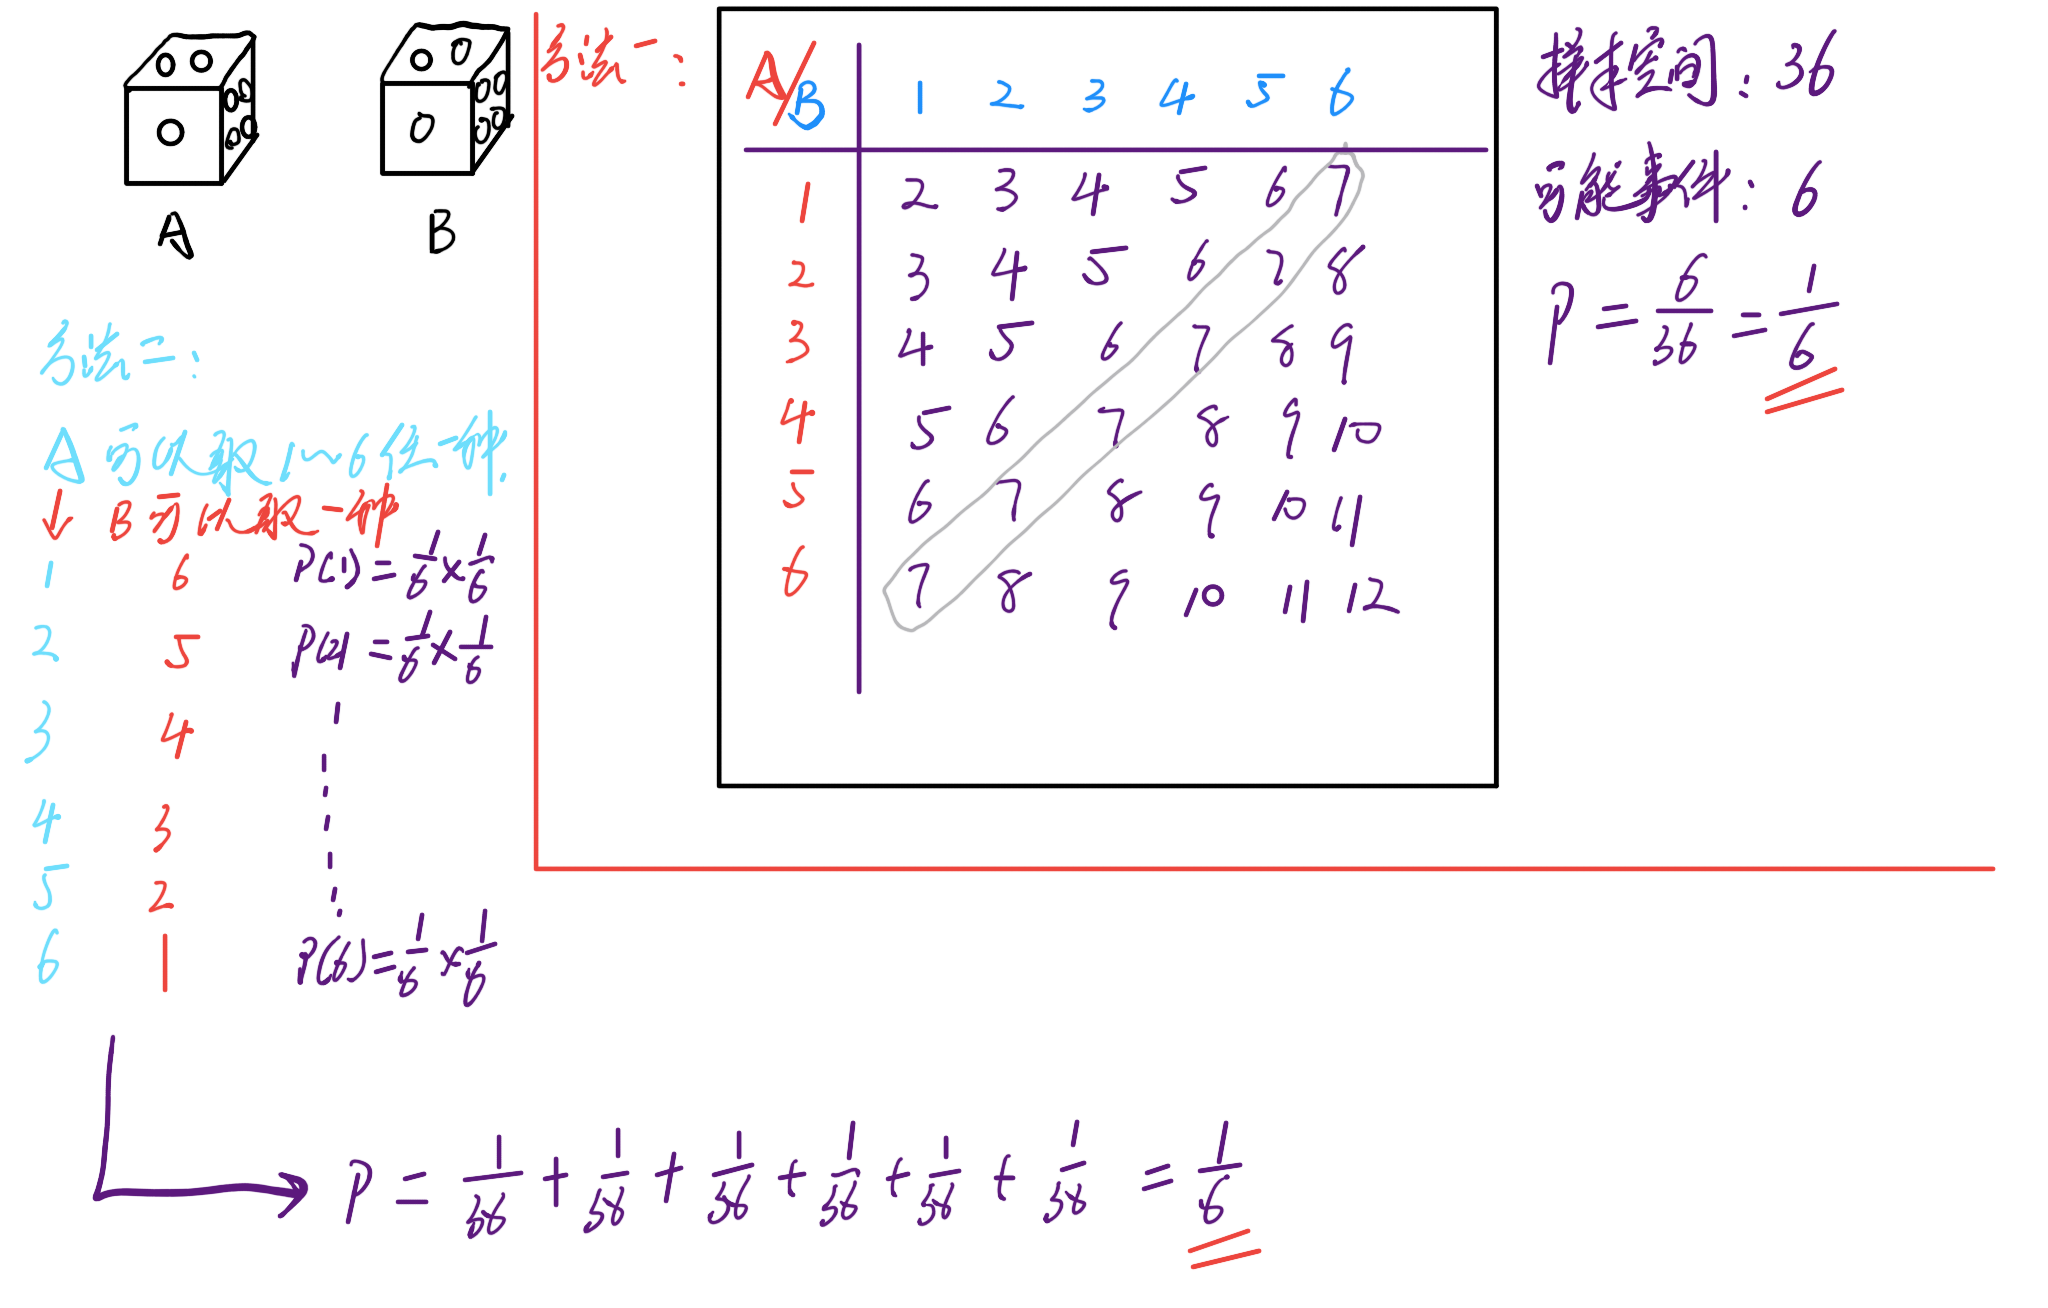 A B
方法一:
A/B 1 2 3 4 5 6
1 2 3 4 5 6 7
2 3 4 5 6 7 8
3 4 5 6 7 8 9
4 5 6 7 8 9 10
5 6 7 8 9 10 11
6 7 8 9 10 11 12
样本空间: 36
可能事件: 6
P = 6/36 = 1/6
方法二:
A 可以取 1~6 任一种.
↓ B 可以取一种
1 6 P(1) = 1/6 × 1/6
2 5 P(2) = 1/6 × 1/6
3 4
4 3
5 2
6 1 P(6) = 1/6 × 1/6
P = 1/36 + 1/36 + 1/36 + 1/36 + 1/36 + 1/36 = 1/6